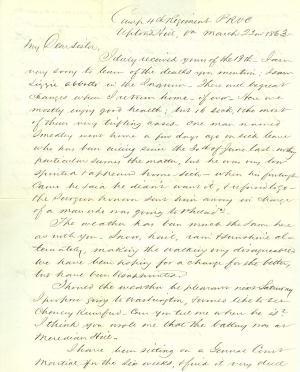 Camp 4th Regiment PRVC
Upton's Hill, Va March 22nd 1863
My Dear Sister,
I duly received yours of the 19th. I am
very sorry to learn of the deaths you mention;
Lizzie Abbotts in the particular. There will be great
changes when I return home, if ever. Here we
mostly enjoy good health; but 16 sick, the most
of them very trifling cases. One man named
Smedley went home a few days ago on sick leave
who has been ailing since the 30th of June last. nothing
particular seemed the matter, but he was very low
spirited & appeared home sick - when his furlough
came he said he didn't want it, & refused to go -
the Surgeon however sent him away in charge
of a man who was going to Philada.
The weather has been much the same here
as with you. Snow, hail, rain & sunshine al-
ternately, making the walking very disagreeable
we have been hoping for a change for the better,
but have been disappointed.
Should the weather be pleasant next Saturday
I propose going to Washington, & would like to see
Charley Rumford. Can you tell me where he is?
I think you wrote me that the battery was at
Meridian Hill.
I have been sitting on a General Court
Martial for the six weeks, & find it very dull